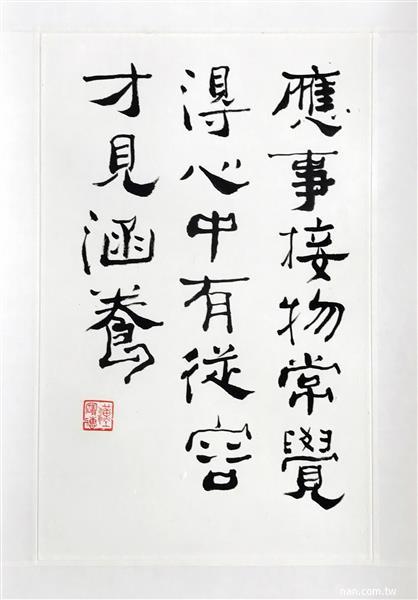 應事接物常覺
得心中有從容
才見涵養
nan.com.tw